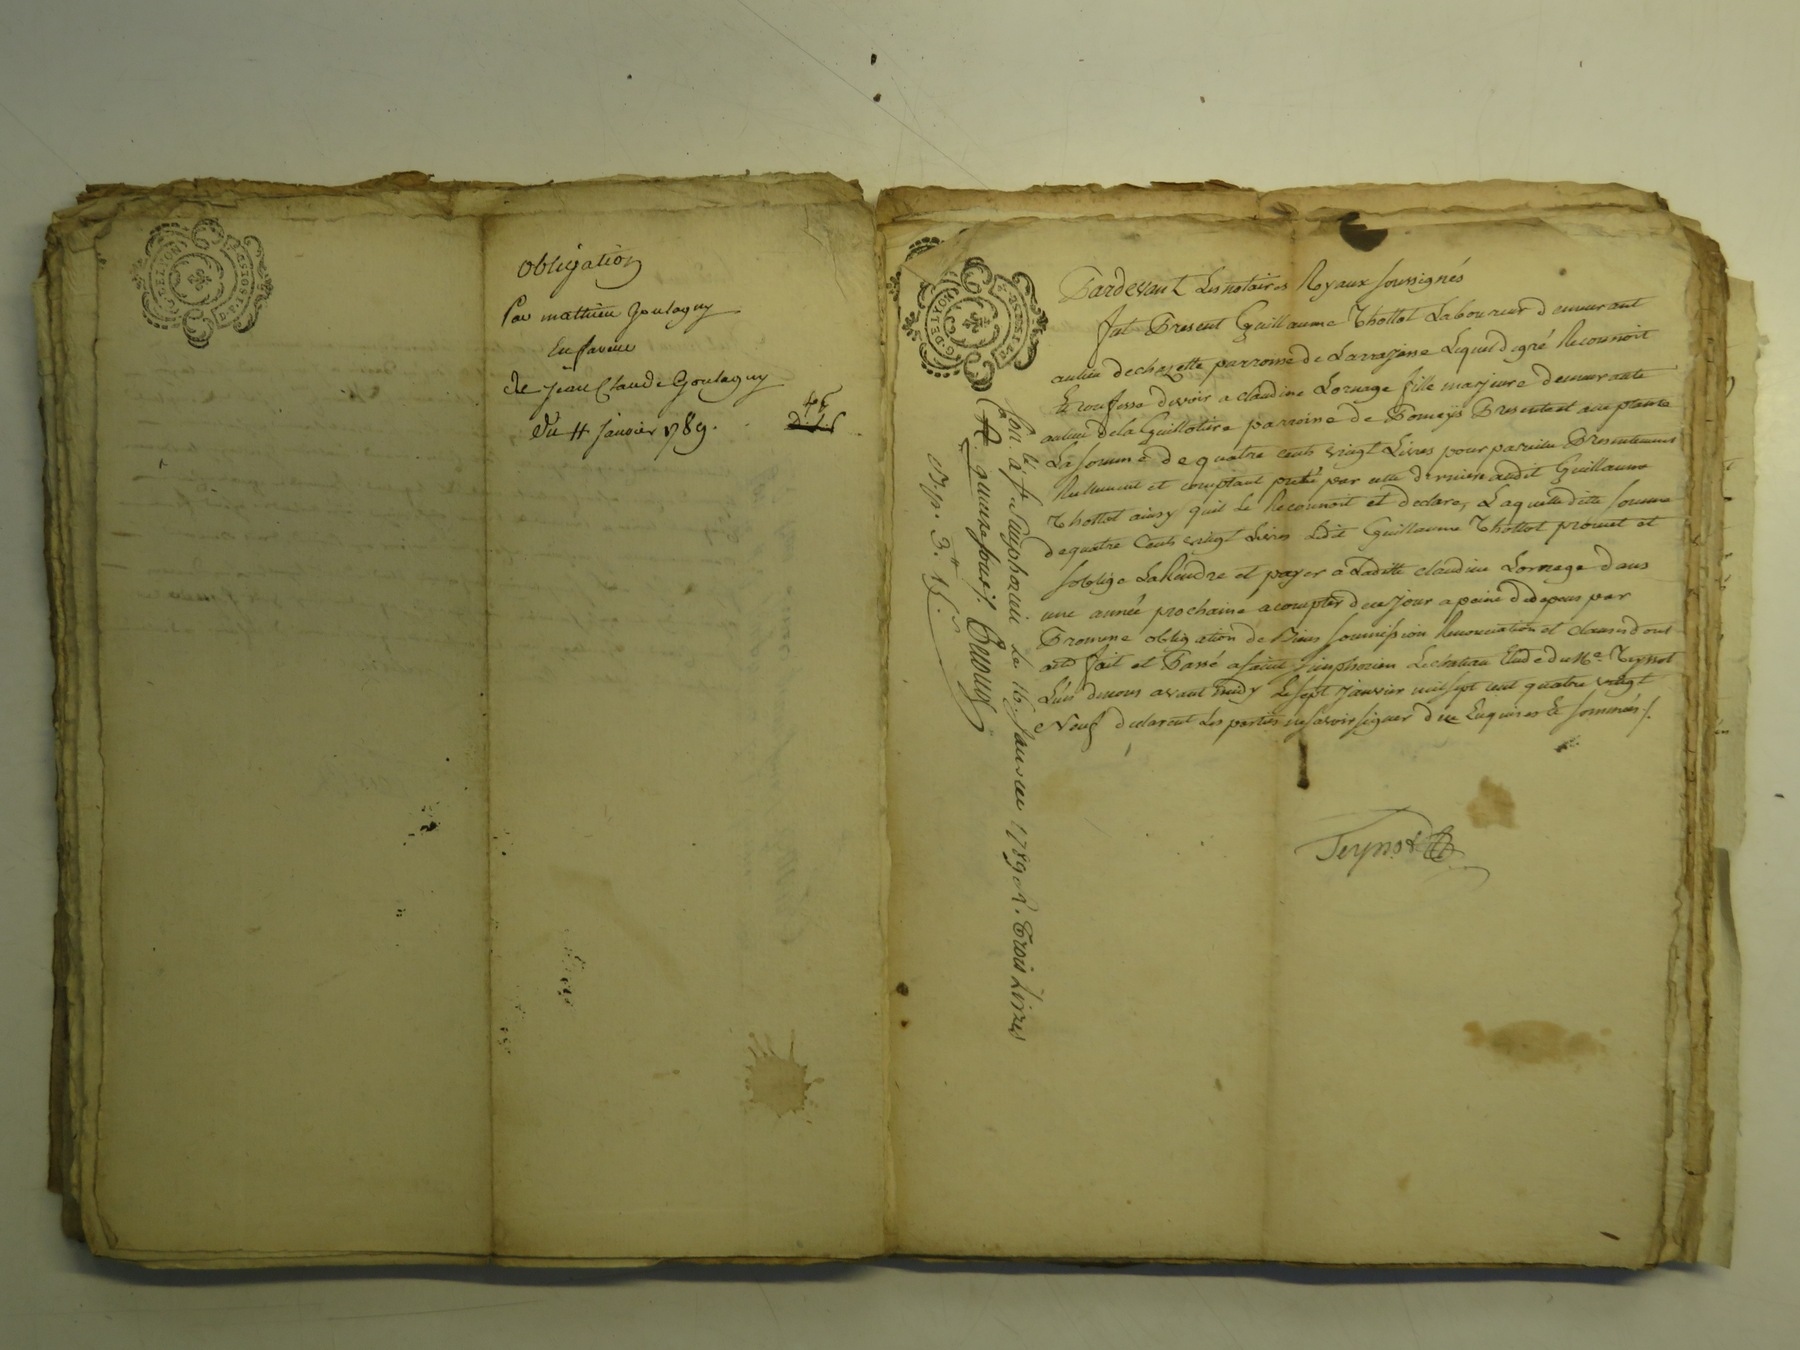 G. DE LYON
D. 1 SOL 8 D.
obligation
Par mathieu Goulagny
En faveur
de jean Claude Goulagny
Du 11 janvier 1789.
G. DE LYON
Pardevant Les notaires Royaux soussignés
fut Present Guillaume Thollot Laboureur demeurant
aulieu de chozette parroisse de Larrajasse Lequel de gré Reconnoit
Et confesse devoir a claudine Lornage fille majeure demeurante
aulieu de la Guillotiere parroisse de Pomeys Presente et acceptante
La somme de quatre cents vingt Livres pour pareille Presentement
Reellement et comptant preté par cette derniere audit Guillaume
Thollot ainsy quil Le Reconnoit et declare, Laquelle ditte somme
de quatre Cents vingt Livres Ledit Guillaume Thollot promet et
soblige La Rendre et payer a Laditte claudine Lornage dans
une année prochaine acompter de ce jour a peine de depens par
Promesse obligation de Biens soumission Renonciation et clauses dont
acte fait et Passé a saint simphorien Lechatau Etude du Me. Teyssot
L'un de nous avant midy Le sept janvier mil sept cent quatre vingt
Neuf declarent Les parties ne savoir signer de ce Enquises Et sommés /.
a St. Simphorien le 16. Janvier 1789 R. Trois Livres
quinze sous /.